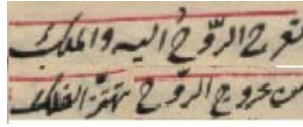 تعرج الروح اليه والملك
من عروج الروح يهتز الفلك